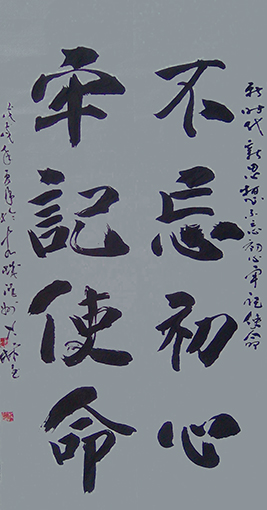 新时代新思想不忘初心牢记使命
不忘初心
牢記使命
戊戌年